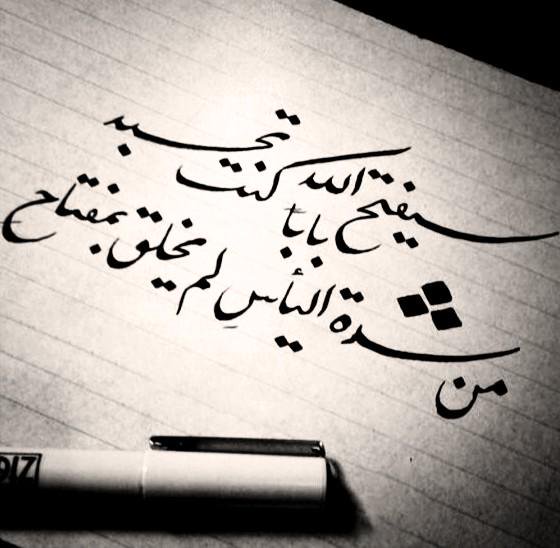 سيفتح الله باباً كنت تحسبه
من شدة اليأسِ لم يخلق بمفتاح